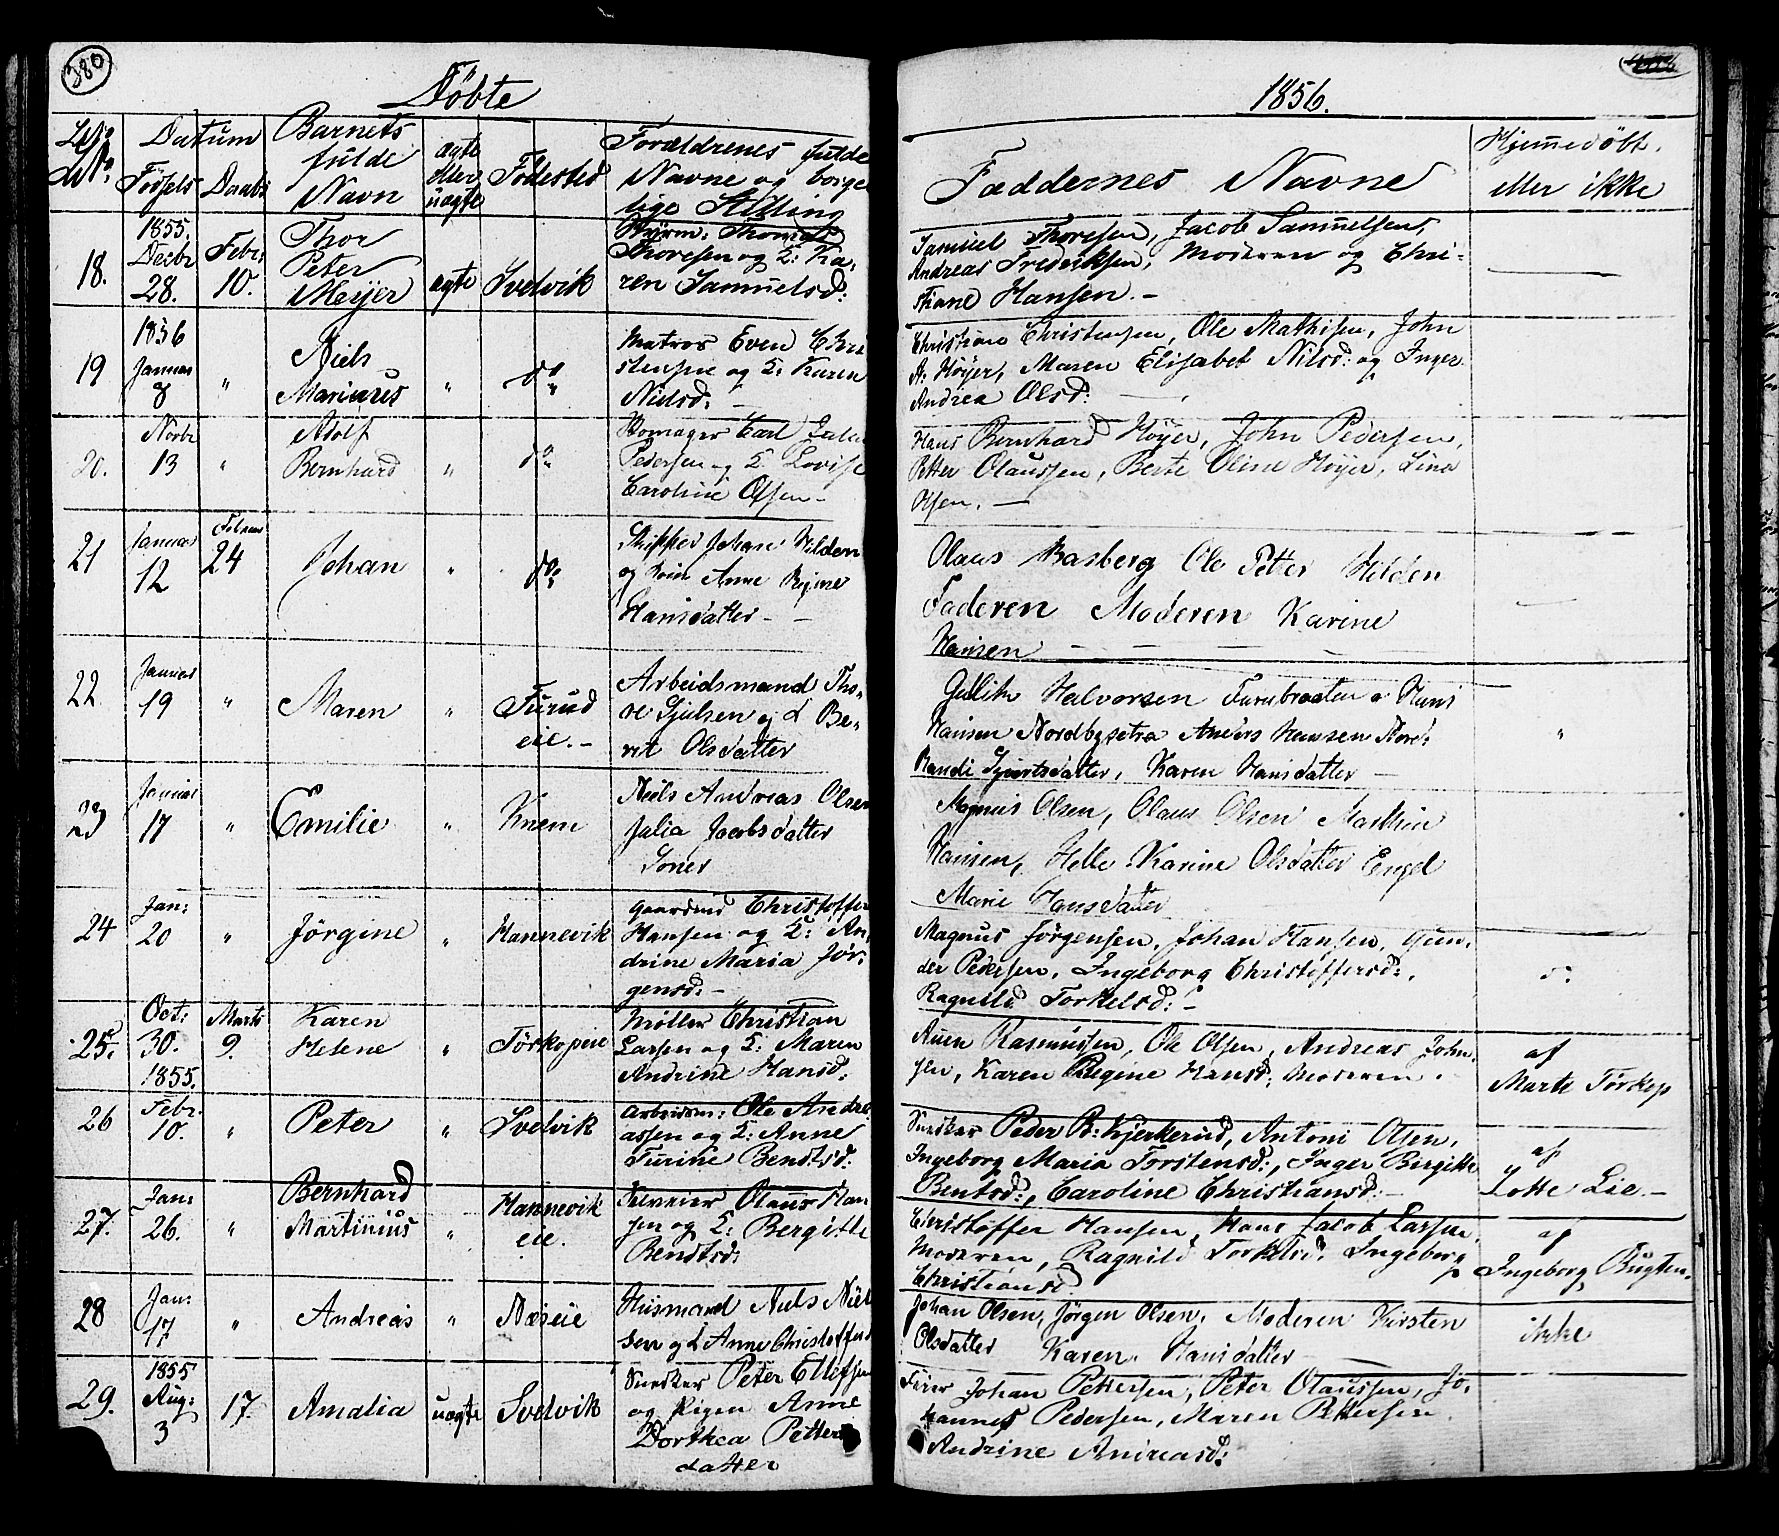 380
Døbte
1856.
Datum
Barnets fulde Navn
ægte eller uægte
Fødested
Forældrenes fulde Navne og borgelige Stilling
Faddernes Navne
Hjemmedøbt eller ikke
No.
Fødsels
Daabs
18.
1855.
Decbr
28.
Febr:
10.
Thor
Peter
Meyer
ægte
Svelvik
Styrm: Thomas
Thoresen og K: Ka-
ren Samuelsd:
Samuel Thoresen, Jacob Samuelsen,
Andreas Frederiksen, Moderen og Chri-
stiane Hansen. -
19
1856
Januar
8
"
Niels
Marinus
"
do
Matros Even Chri
stensen og K: Karen
Nielsd:
Christian Christensen, Ole Mathisen, John
A. Høyer, Maren Elisabet Nilsd: og Inger
Andrea Olsd:
20.
Novbr
13
"
Adolf
Bernhard
"
do
Skomager Carl
Pedersen og K. Lovise
Caroline Olsen -
Hans Bernhard Høyer, John Pedersen,
Petter Olaussen, Berte Oline Høyer, Lina
Olsen. -
21
Januar
12
Februar
24
Johan
"
do
Skipper Johan Hilden
og Kone Anne Regine
Hansdatter -
Olaus Basberg Ole Petter Hilden
Faderen Moderen Karine
Hansen
22
Januar
19
"
Maren
"
Furud
eie. -
Arbeidsmand Tho-
re og K Be-
rit Olsdatter
Halvorsen Furubraaten Hans
Hansen Nordbysetra Anders Hansen Nord:
Randi Karen Hansdatter -
"
23
Januar
17
"
Emilie
"
Knem
Niels Andreas Olsen
Julia Jacobsdatter
Magnus Olsen, Olaus Olsen Mathias
Hansen, Helle Karine Olsdatter Engel
Marie Hansdatter
24
Jan:
20
"
Jørgine
"
Hannevik
Gaardmd Christoffer
Hansen og K: An-
drine Maria Jør-
gensd: -
Magnus Jørgensen, Johan Hansen, Gun-
der Pedersen, Ingeborg Christoffersd:,
Ragnild Torkelsd: -
25.
Oct:
30.
1855.
Marts
9.
Karen
Helene
"
Tørkopeie
Møller Christian
Larsen og K: Maren
Andrine Hansd:
Auen Rasmussen, Ole Olsen, Andreas John-
sen, Karen Regine Hansd: Moderen.
af
Marte Tørkop
26
Febr.
10.
"
Peter
"
Svelvik
Arbeidsm: Ole Andre-
assen og K: Anne
Turine Bendtsd:
Snedker Peder B: Kjerkerud, Antoni Olsen,
Ingeborg Maria Torstensd:, Inger Birgitte
Bentsd:, Caroline Christiansd: -
af
Lotte Lie. -
27.
Jan:
26.
"
Bernhard
Martinius
"
Hannevik
eie.
Olaus Han
sen og K: Bergitte
Bendtsd:
Christoffer Hansen, Hans Jacob Larsen,
Moderen, Ragnild Torkelsd: Ingeborg
Christiansd.
af
Ingeborg Bugten.
28
Jan:
17
"
Andreas
"
Næseie
Husmand Niels Niel
sen og K Anne Christoffersd
Johan Olsen, Jørgen Olsen, Moderen Kirsten
Olsdatter Karen Hansdatter
ikke
29.
1855
Aug:
3
17.
Amalia
uægte
Svelvik
Snedker Peter Ellefsen
og Pigen Anne
Dorthea Petters
datter
Johan Pettersen, Peter Olaussen, Jo-
hannes Pedersen, Maren Pettersen
Andrine Andreasd: